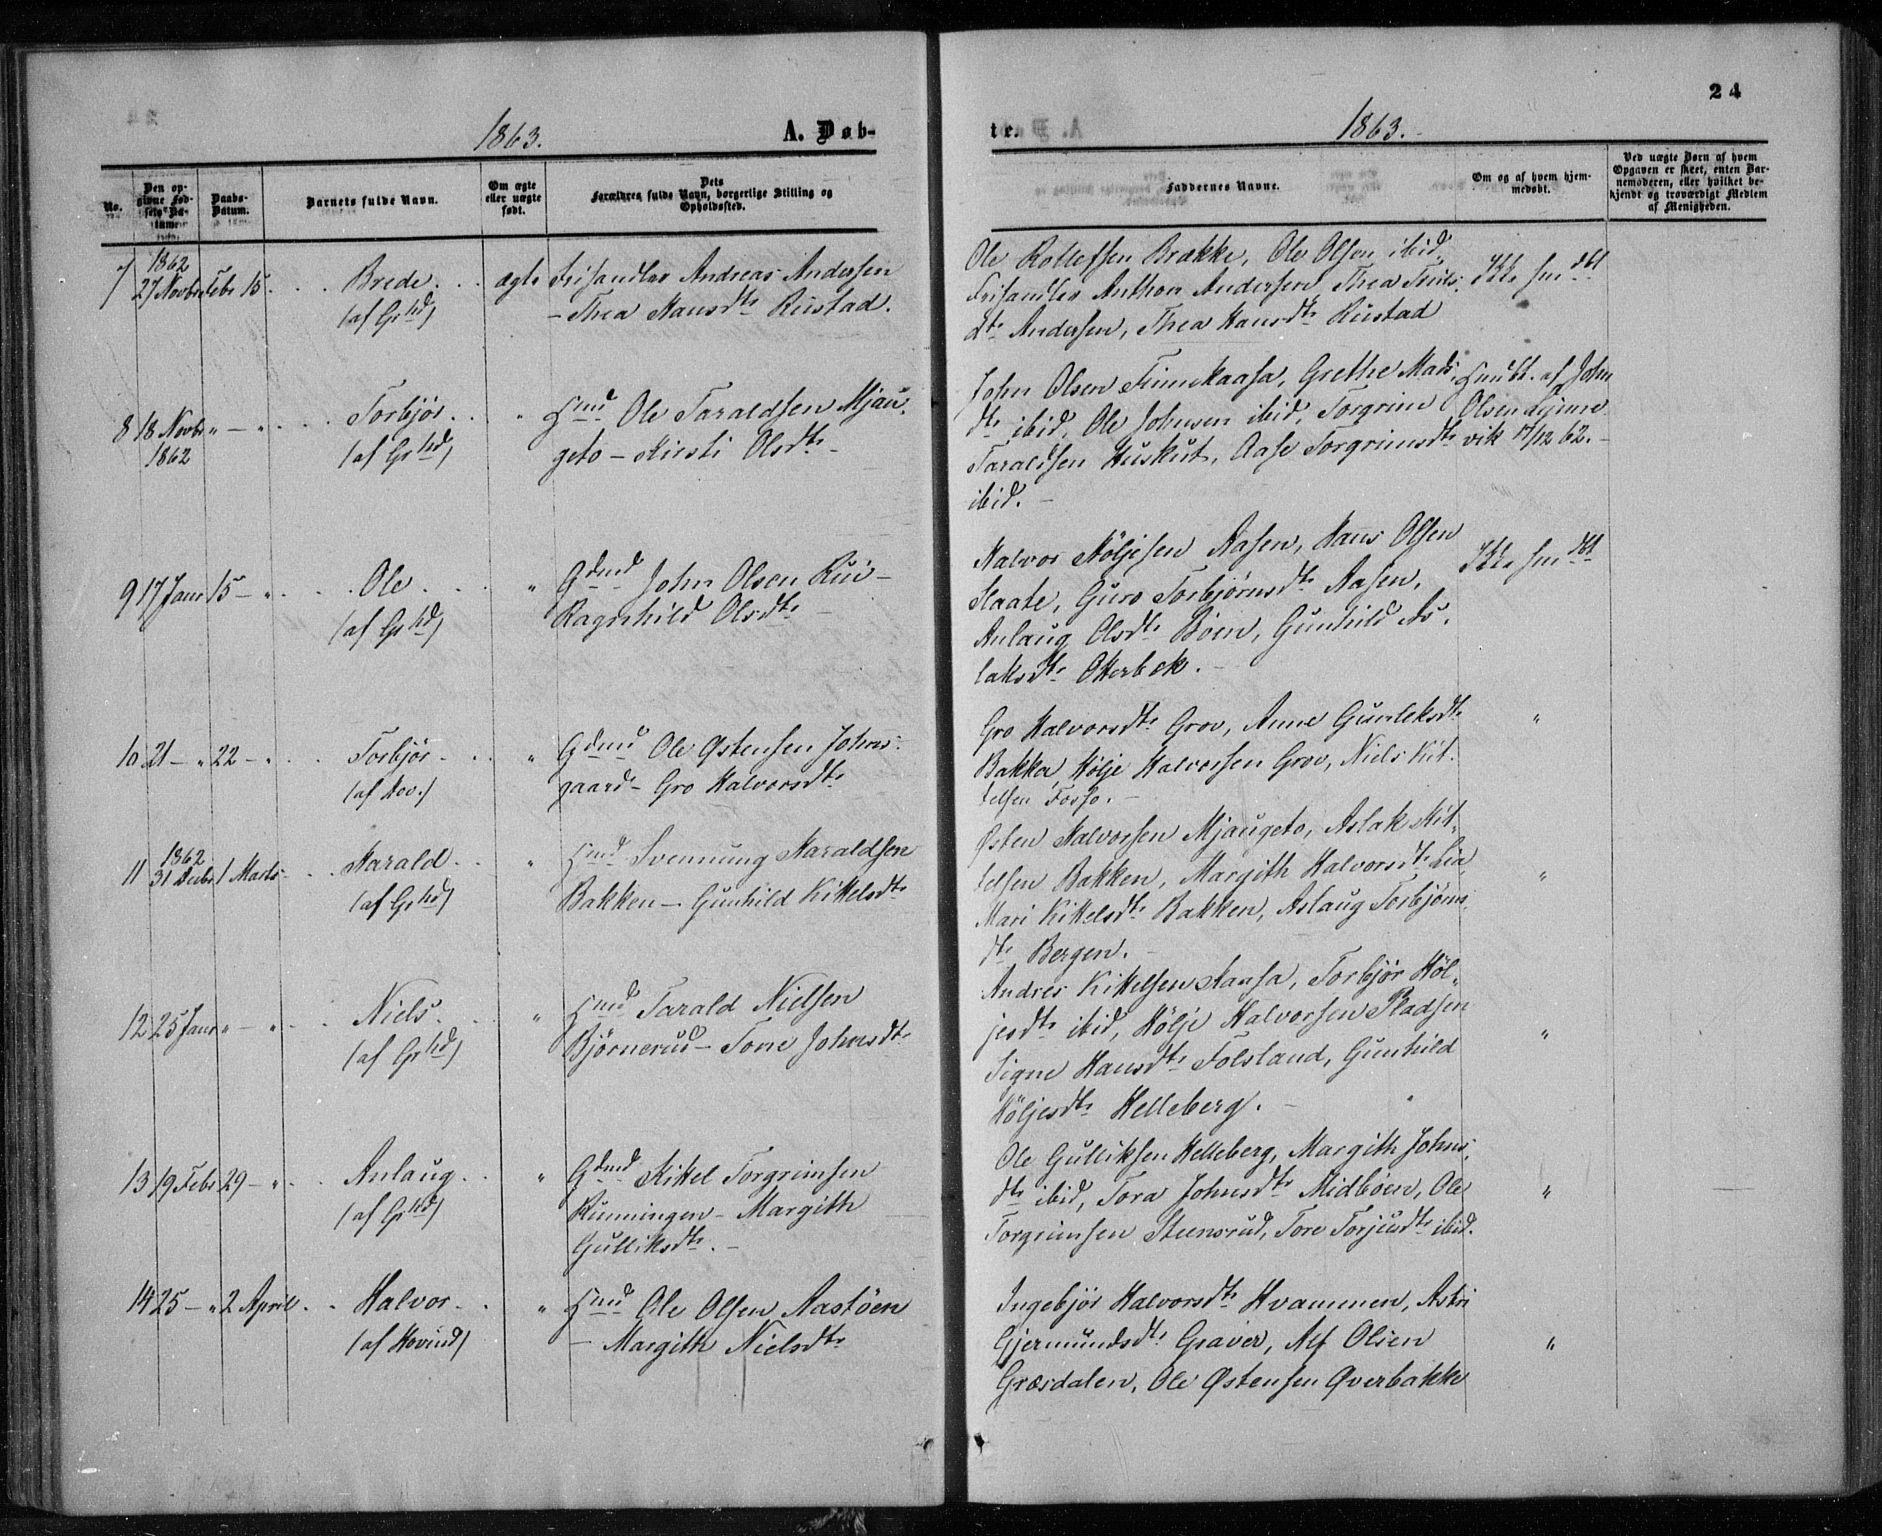 24
1863.
A. Døb-
te.
1863.
No.
Den op-
givne Fød-
sels-Da-
tum
Daabs-
Datum.
Barnets fulde Navn.
Om ægte
eller uægte
født.
Dets
Forældres fulde Navn, borgerlige Stilling og
Opholdssted.
Faddernes Navne.
Om og af hvem hjem-
medøbt.
Ved uægte Børn af hvem
Opgaven er skeet, enten Bar-
nemoderen, eller hvilket be-
kjendt og troværdigt Medlem
af Menigheden.
7 1862
27 Novbr Febr 15. Brede. ægte Andreas Andersen
(af Grhd) – Thea Hansdtr Rustad.
Ole Rollefsen Brække, Ole Olsen ibid,
Anthon Andersen, Thea
dtr Andersen, Thea Hansdtr Rustad
Ikke hmdbt
8 18 Novbr " – " Torbjør. " Hmd Ole Taraldsen Mjau-
1862 (af Grhd) geto – Kirsti Olsdtr –
John Olsen Finnekaasa, Grethe Mads-
dtr ibid, Ole Johnsen ibid, Torgrim
Taraldsen Huskut, Aase Torgrimsdtr
ibid. –
af John
Olsen
vik 17/12 62. –
9 17 Janr 15 – " Ole. " Gdmd John Olsen Rui –
(af Grhd) Ragnhild Olsdtr –
Halvor Høljesen Aasen, Hans Olsen
Slaate, Guro Torbjørnsdtr Aasen,
Anlaug Olsdtr Bøen, Gunhild As-
laksdtr Otterbek. –
Ikke hmdbt
10 21 – " 22 – " Torbjør. " Gdmd Ole Østensen Johns-
(af Hov.) gaard – Gro Halvorsdtr
Gro Halvorsdtr Grov, Anne Gunleksdtr
Bakka, Hølje Halvorsen Grov, Niels Kit-
telsen Fosso. –
"
11 1862
31 Decbr 1 Marts Harald. " Hmd Svennung Haraldsen
(af Grhd) Bakken – Gunhild Kittelsdtr
Østen Halvorsen Mjaugeto, Aslak Kit-
telsen Bakken, Margith Halvorsdtr Lia,
Mari Kittelsdtr Bakken, Aslaug Torbjørns-
dtr Bergen. –
"
12 25 Janr " – " Niels. " Hmd Tarald Nielsen
(af Grhd) Bjørnerud – Tone Johnsdtr
Andres Kittelsen Kaasa, Torbjør Høl-
jesdtr ibid, Hølje Halvorsen Pladsen
Signe Hansdtr Folsland, Gunhild
Høljesdtr Helleberg. –
"
13 19 Febr 29 – " Anlaug. " Gdmd Kittel Torgrimsen
(af Grhd) Runningen – Margith
Gulliksdtr. –
Ole Gulliksen Helleberg, Margith Johns-
dtr ibid, Tora Johnsdtr Midbøen, Ole
Torgrimsen Steensrud, Tore Torjusdtr ibid.
"
14 25 – " 2 April. Halvor. " Hmd Ole Olsen Aastøen
(af Hovind) – Margith Nielsdtr
Ingebjør Halvorsdtr Hvammen, Astri
Gjermundsdtr Graver, Alf Olsen
Græsdalen, Ole Østensen Øverbakke
"